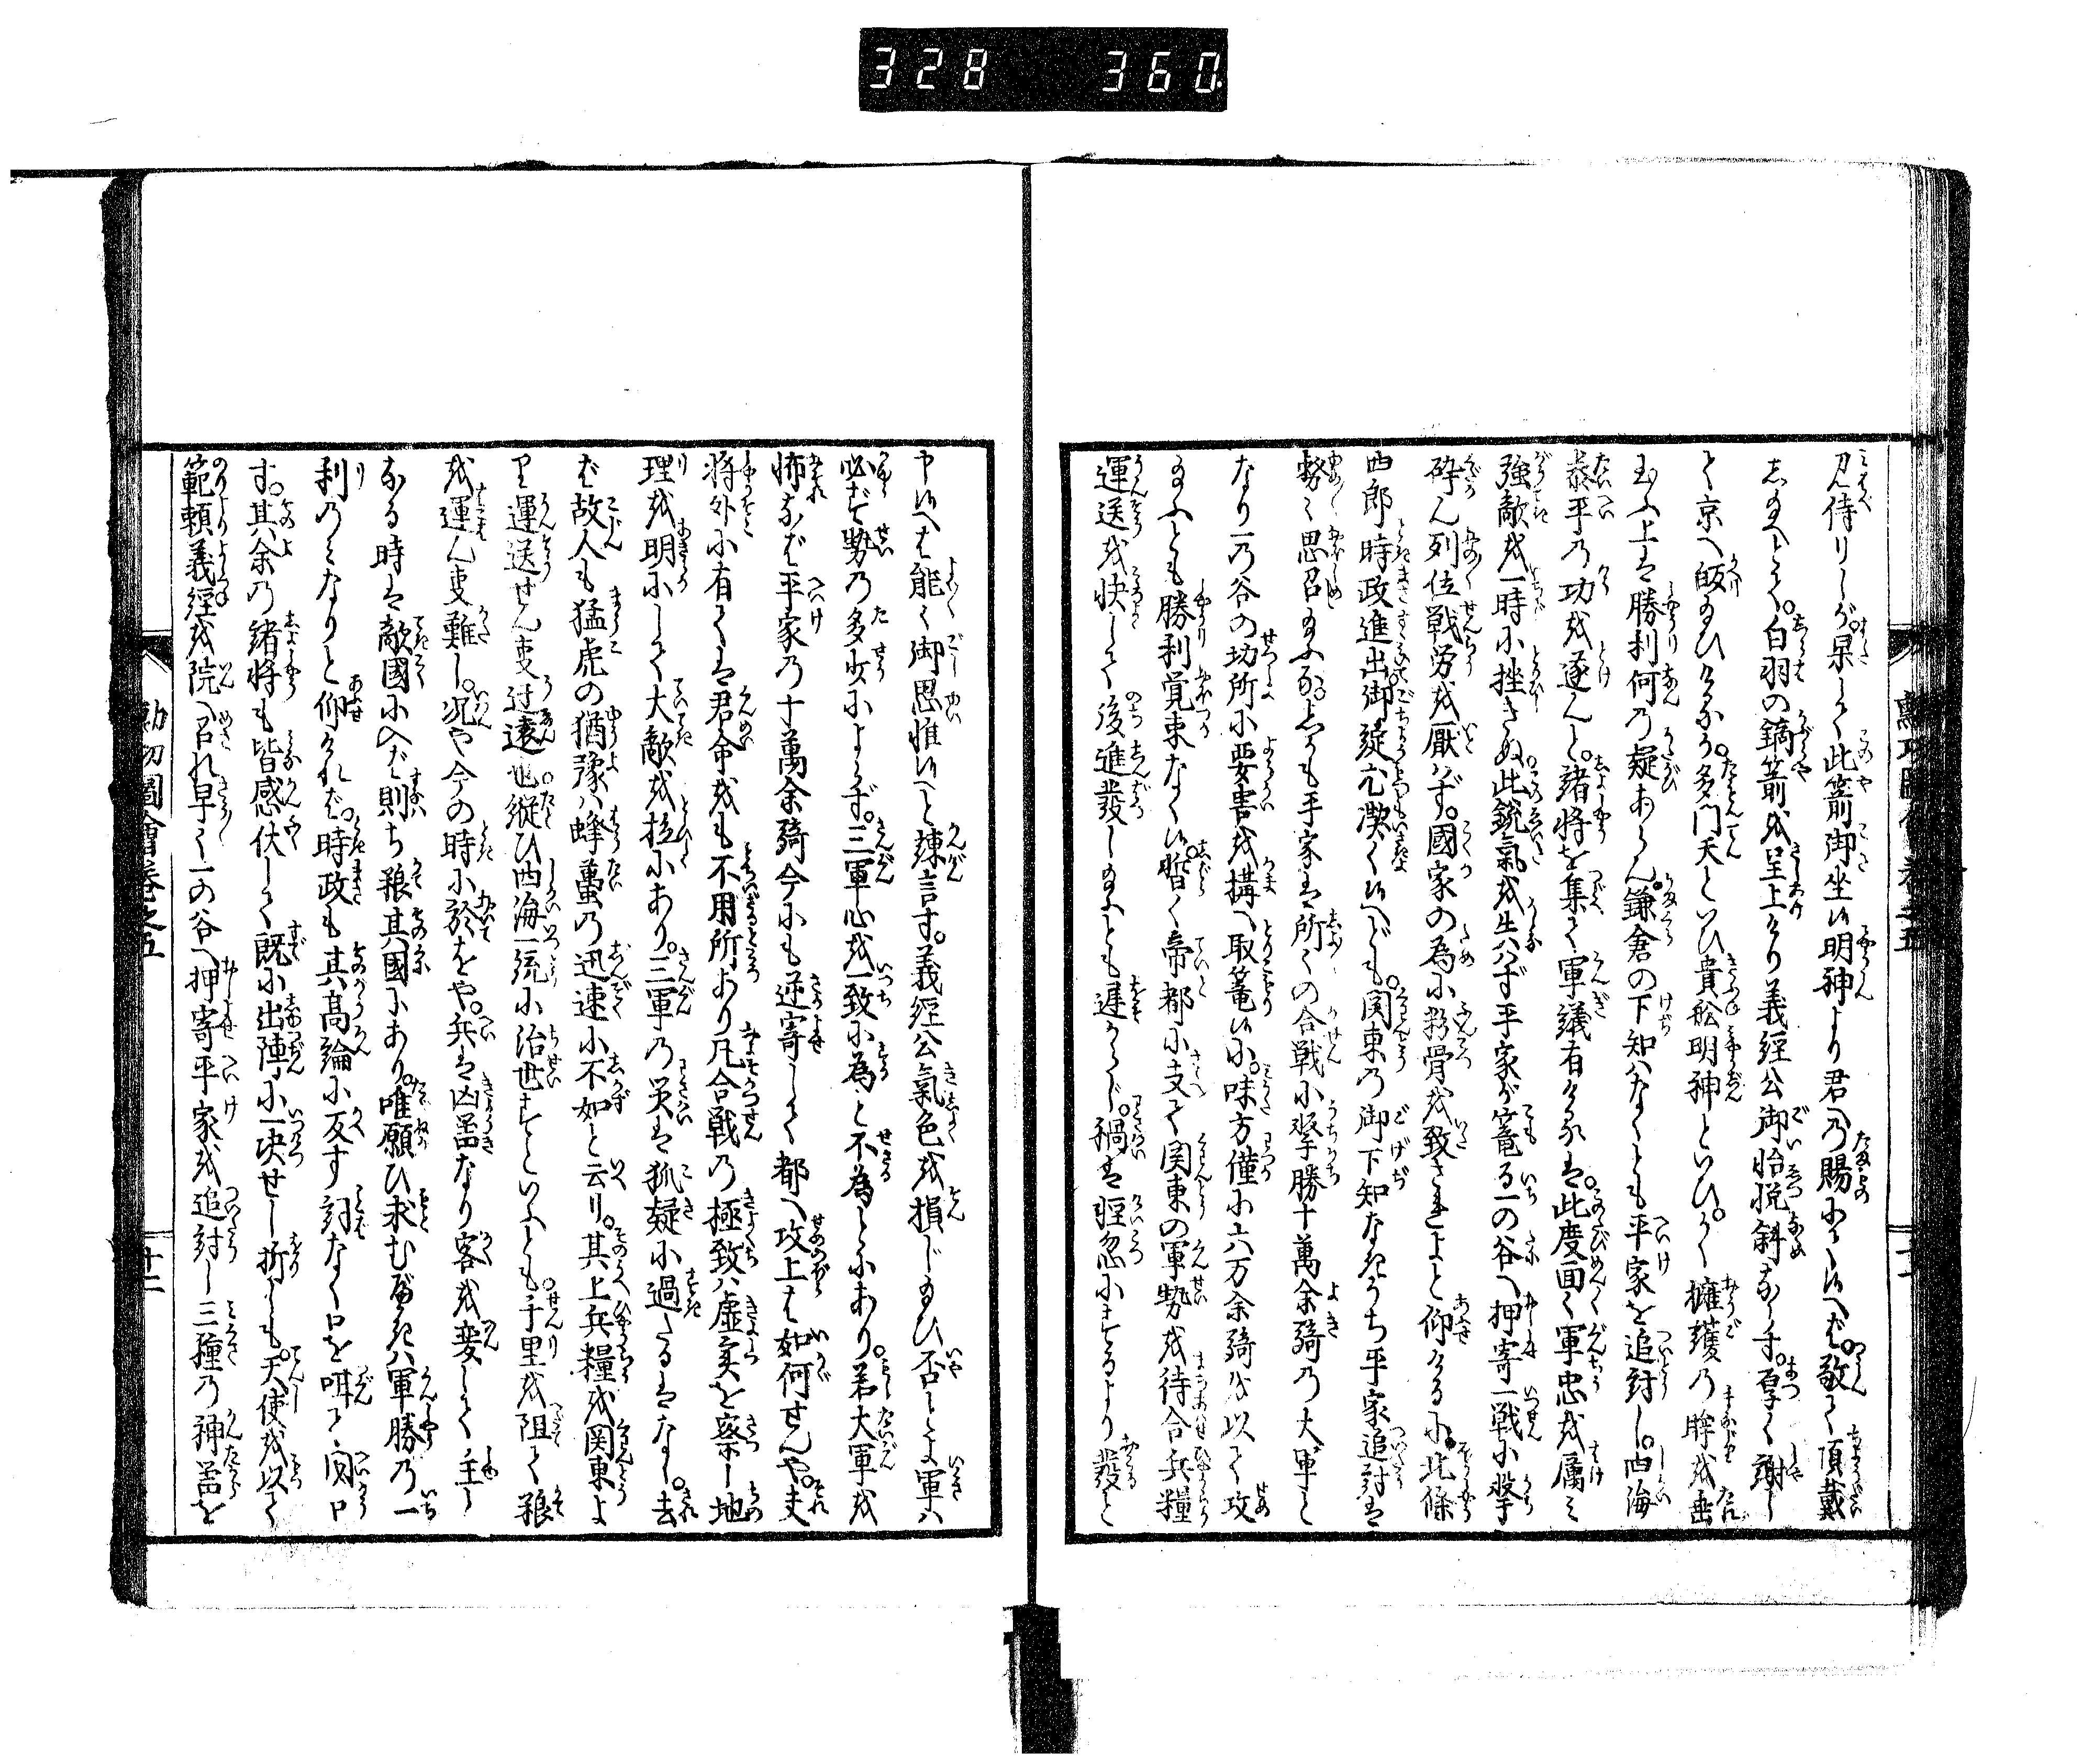 328 360
刀侍りしが。果して此箭御坐候明神より君乃賜にて候へば。敬て頂戴
し給へとて。白羽の鏑箭を呈上けり義經公御怡悦斜ならず。厚く謝し
て京へ皈給ひけるが。多門天といひ貴舩明神といひ。かく擁護乃眸を垂
玉ふ上は勝利何乃疑あらん。鎌倉の下知はなくとも平家を追討し。西海
泰平乃功を遂んと。諸将を集て軍議有ける。此度面〻軍忠を属み
強敵を一時に挫きぬ此鋭氣を失はず平家が篭る一の谷へ押寄一戦に撃
砕ん列位戦労を厭はず。國家の為に粉骨を致されよと仰ける。北條
四郎時政進出御諚尤潔く候へども。関東乃御下知なきうち平家追討は
勢〻思召給ふな。しかも平家は所〻の合戦に撃勝十萬余騎乃大軍と
なり一乃谷の切所に要害を構へ取篭候に。味方僅に六万余騎を以て攻
給ふとも勝利覚束なく候。暫く帝都に支て関東の軍勢を待合兵糧
運送を快して後進發し給ふとも遅からじ。禍は軽忽にするより發と
申候へば能〻御思惟候へと諫言す。義經公氣色を損じ給ひ否とよ軍は
必ず勢の多少によらず。三軍心を一致に為と不為とにあり。若大軍を
怖なば平家乃十萬余騎今にも逆寄して都へ攻上らば如何せんや。夫
将外に有ては君命をも不用所あり凡合戦乃極致は虚実を察し地
理を明にして大敵を拉にあり。三軍乃災は狐疑に過たるはなし。去
ば故人も猛虎の猶豫は蜂蠆乃迅速に不如と云り。其上兵糧を関東よ
り運送せん事迂遠也。縦ひ西海一統に治世すといふとも。千里を阻て粮
を運ん事難し。况や今の時に於をや。兵は凶噐なり客を変して主と
なる時は敵國に入ば則ち粮其國にあり。唯願ひ求むべきは軍勝乃一
利のみなりと仰ければ。時政も其高論に反す詞なく口を咡て閉口
す。其余の緒将も皆感伏して既に出陣に一决せし折しも。天使を以て
範頼義經を院へ召れ早〻一の谷へ押寄平家を追討し三種乃神噐を
勲功圖會巻之五
十二